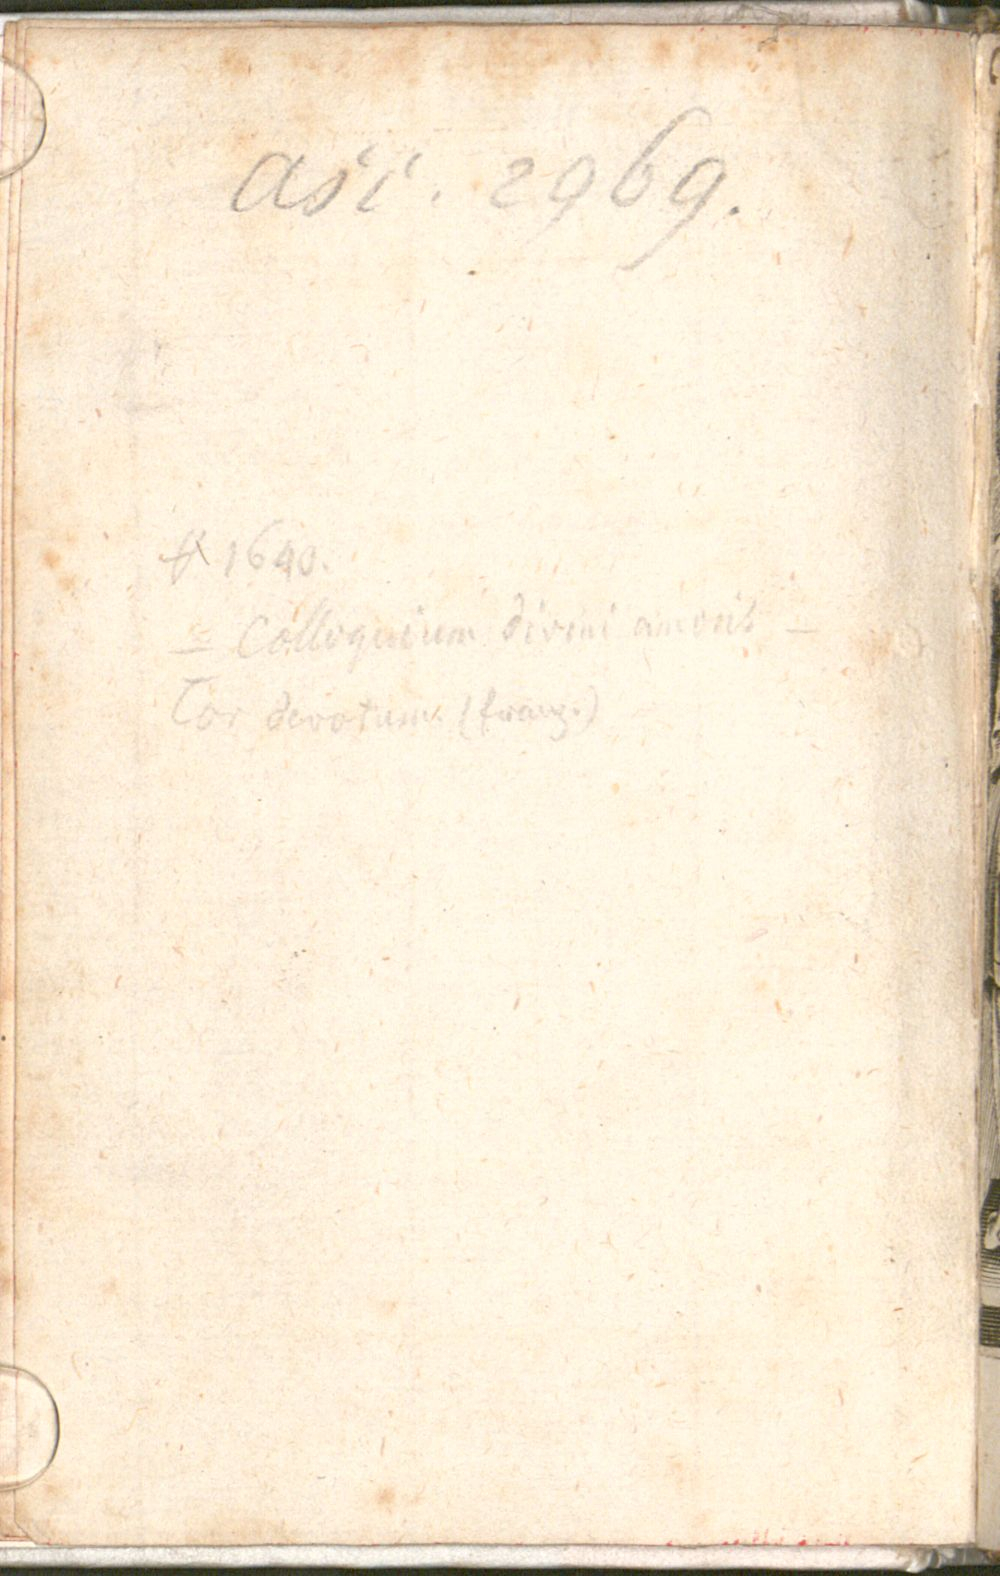 asc. 2969.
1640.
= Colloquium divini amoris –
Cor devotum (franz.)